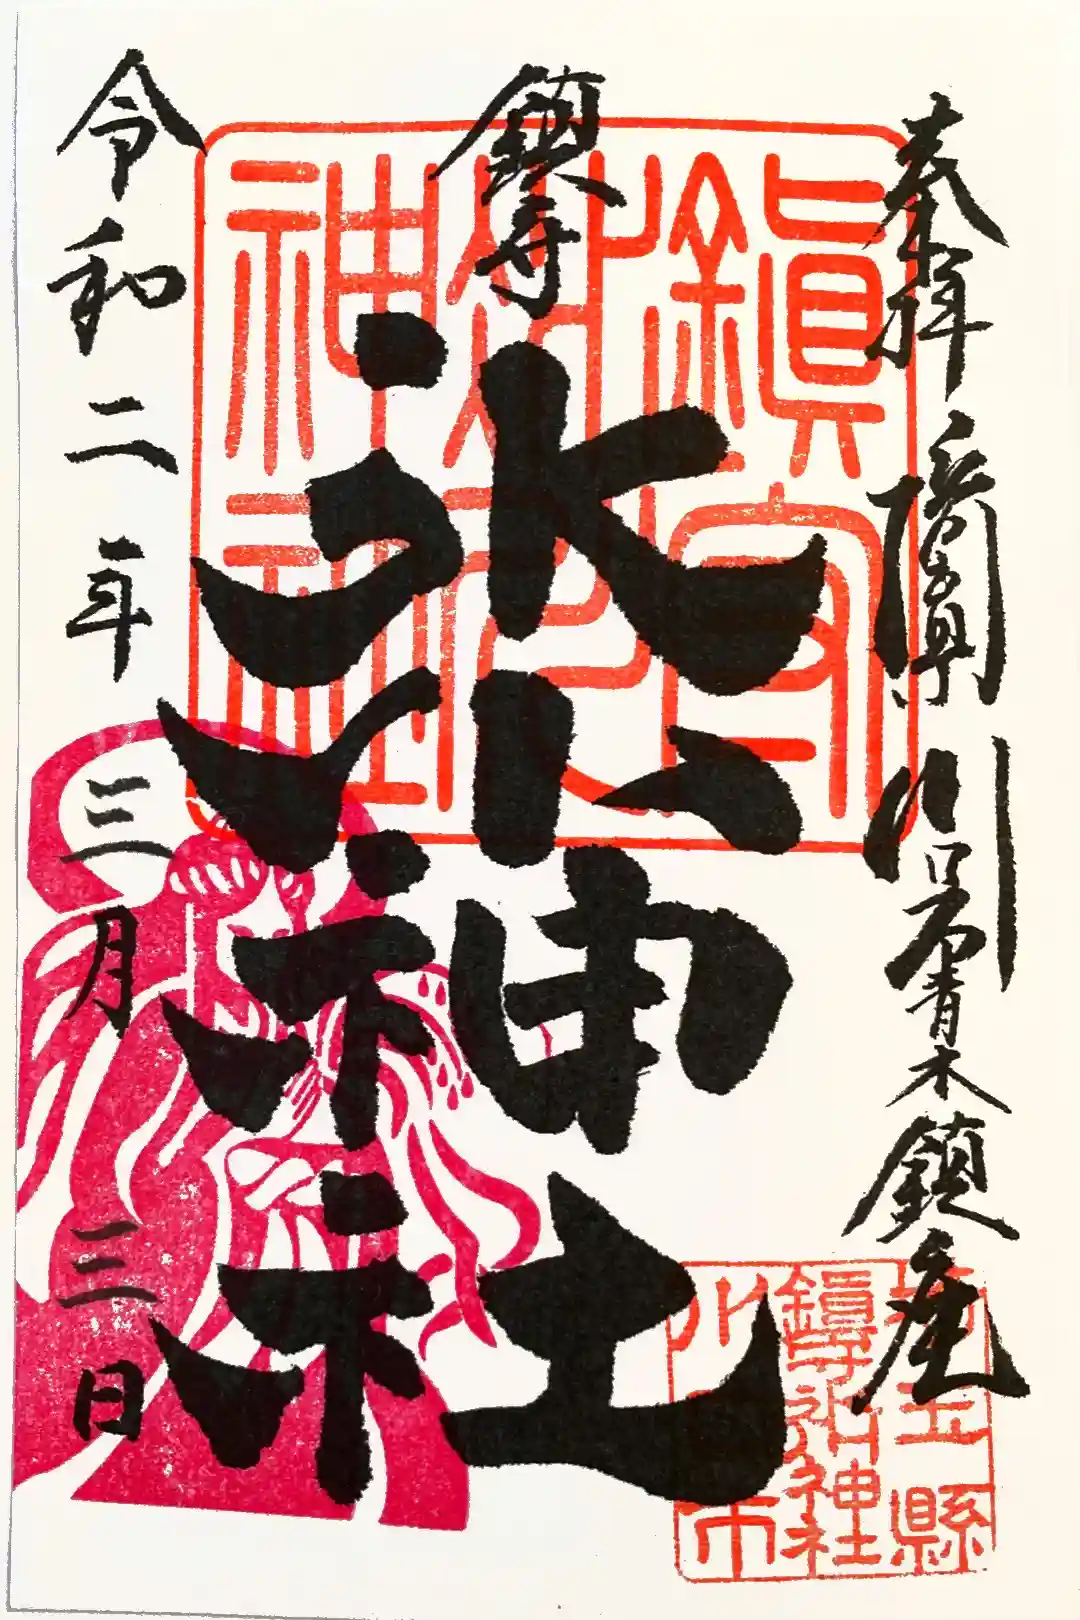 奉拝
川口
青木鎮座
鎮守
氷川神社
令和二年三月三日
鎮守
氷川
神社
埼玉縣
鎮守氷川神社
川口市